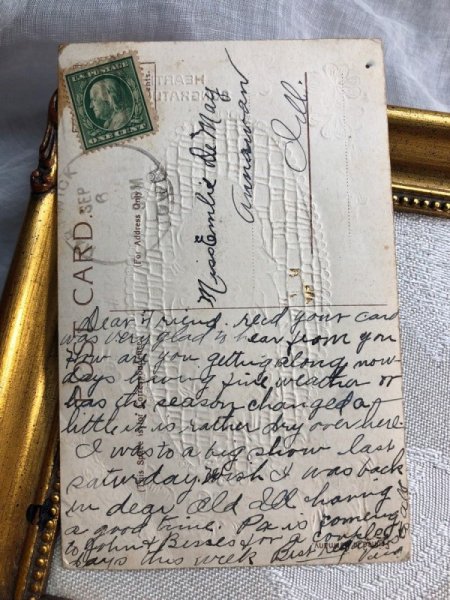 U.S. POSTAGE
ONE CENT
SEP
6
POST CARD
(For Address Only)
Miss Emlie De May
Annawan
Ill
Dear Friend. recd your card
was very glad to hear from you
How are you getting along now-
days having fine weather or
has the season changed a
little it is rather dry over here.
I was to a big show last
saturday wish I was back
in dear old Ill having
a good time. Pa is coming
to John & Besses for a couple
days this week